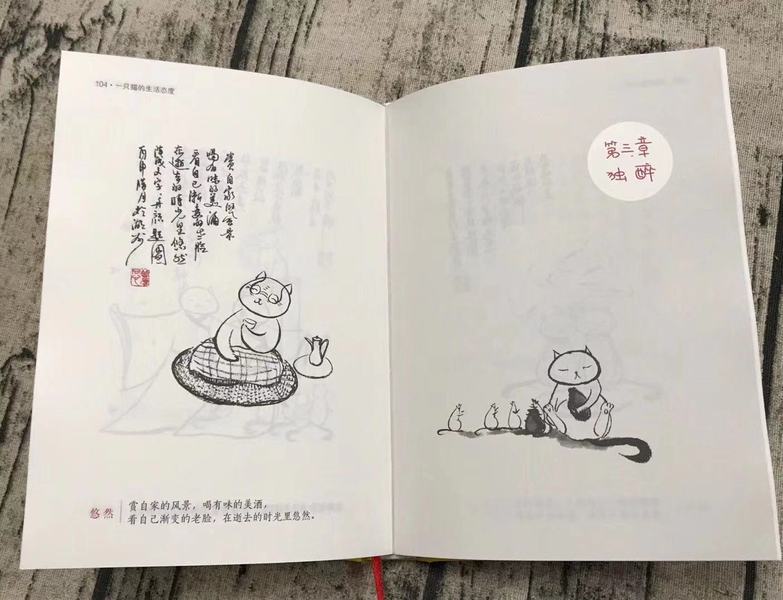 104·一只猫的生活态度
赏自家的风景
喝有味的美酒
看自己渐变的老脸
在逝去的时光里悠然
悠然
赏自家的风景，喝有味的美酒，
看自己渐变的老脸，在逝去的时光里悠然。
第三章
独醉